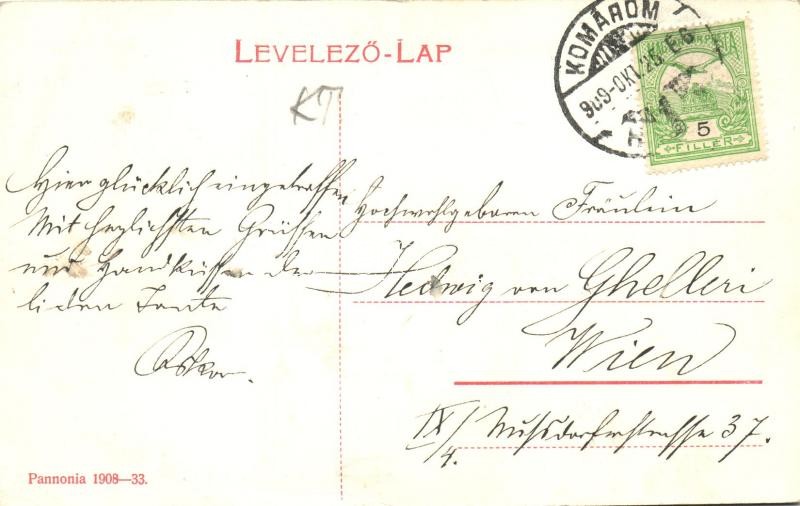 LEVELEZŐ-LAP
KT
KOMÁROM
909-OKT.
5
FILLÉR
Hier glücklich eingetroffen
Mit herzlichsten Grüssen
und Handküssen der
lieben Tante
Oskar.
Hochwohlgeboren Fräulein
Hedwig von Ghelleri
Wien
IX/4. Nussdorferstrasse 37.
Pannonia 1908—33.